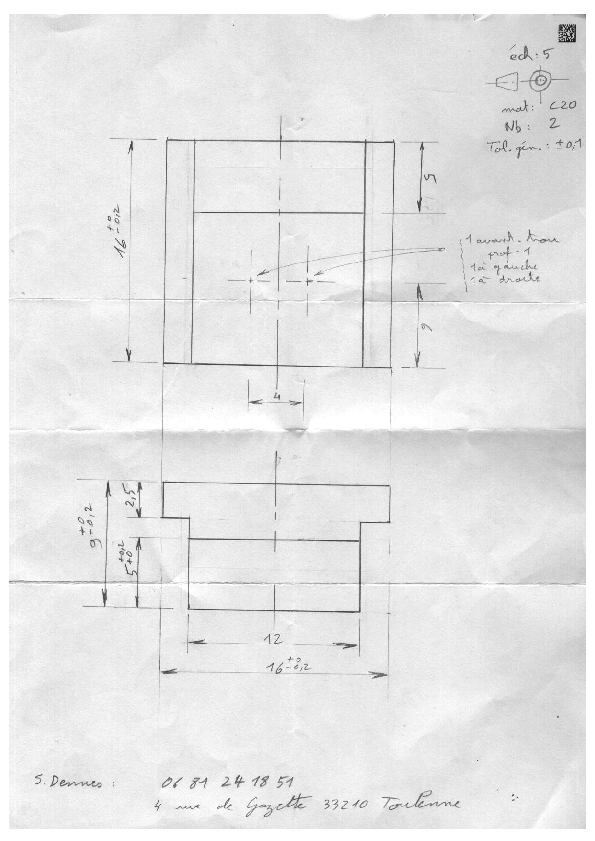 éch: 5
mat: C20
Nb: 2
Tol. gén.: ±0,1
16 +0 -0,2
5
1 avant-trou
prof-1
1 à gauche
1 à droite
9
4
2,5
9 +0 -0,2
5 +0,2 +0
12
16 +0 -0,2
S. Dennes: 06 81 24 18 51
4 rue de Gazette 33210 Toulenne